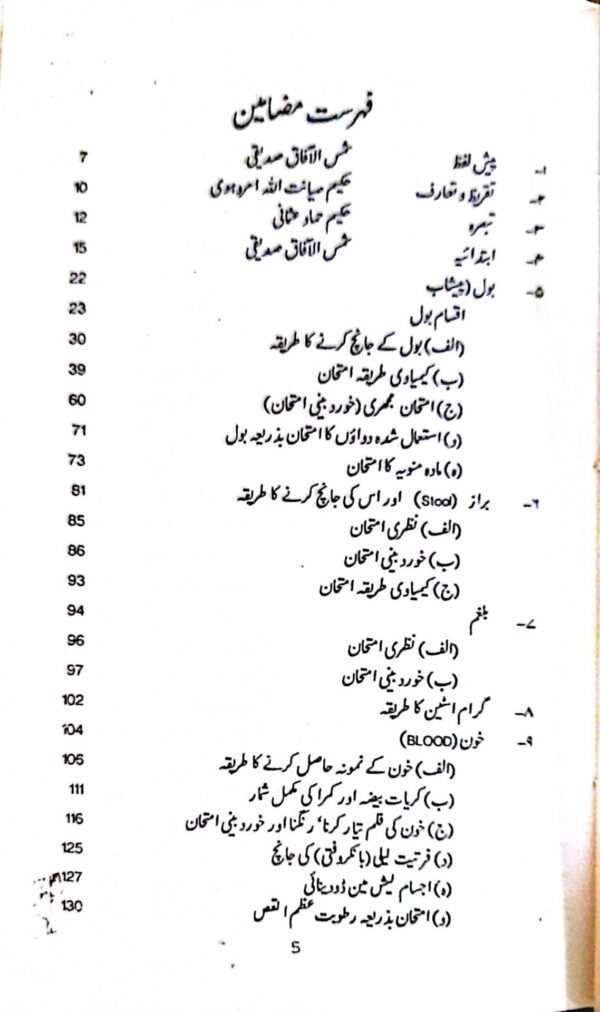 فہرست مضامین
۱- پیش لفظ شمس الآفاق صدیقی 7
۲- تقریظ و تعارف حکیم صیانت اللہ امروہوی 10
۳- تبصرہ حکیم حماد عثمانی 12
۴- ابتدائیہ شمس الآفاق صدیقی 15
۵- بول (پیشاب 22
اقسام بول 23
(الف) بول کے جانچ کرنے کا طریقہ 30
(ب) کیمیاوی طریقہ امتحان 39
(ج) امتحان مجہری (خورد بینی امتحان) 60
(د) استعمال شدہ دواؤں کا امتحان بذریعہ بول 71
(ہ) مادہ منویہ کا امتحان 73
۶- براز (Stool) اور اس کی جانچ کرنے کا طریقہ 81
(الف) نظری امتحان 85
(ب) خورد بینی امتحان 86
(ج) کیمیاوی طریقہ امتحان 93
۷- بلغم 94
(الف) نظری امتحان 96
(ب) خورد بینی امتحان 97
۸- گرام اسٹین کا طریقہ 102
۹- خون (BLOOD) 104
(الف) خون کے نمونہ حاصل کرنے کا طریقہ 106
(ب) کریات بیضہ اور کمرا کی مکمل شمار 111
(ج) خون کی فلم تیار کرنا، رنگنا اور خورد بینی امتحان 116
(د) فرتیت لیلی (بانکروفتی) کی جانچ 125
(ہ) اجسام لیش مین ڈوونائی 127
(و) امتحان بذریعہ رطوبت عظم القص 130
5